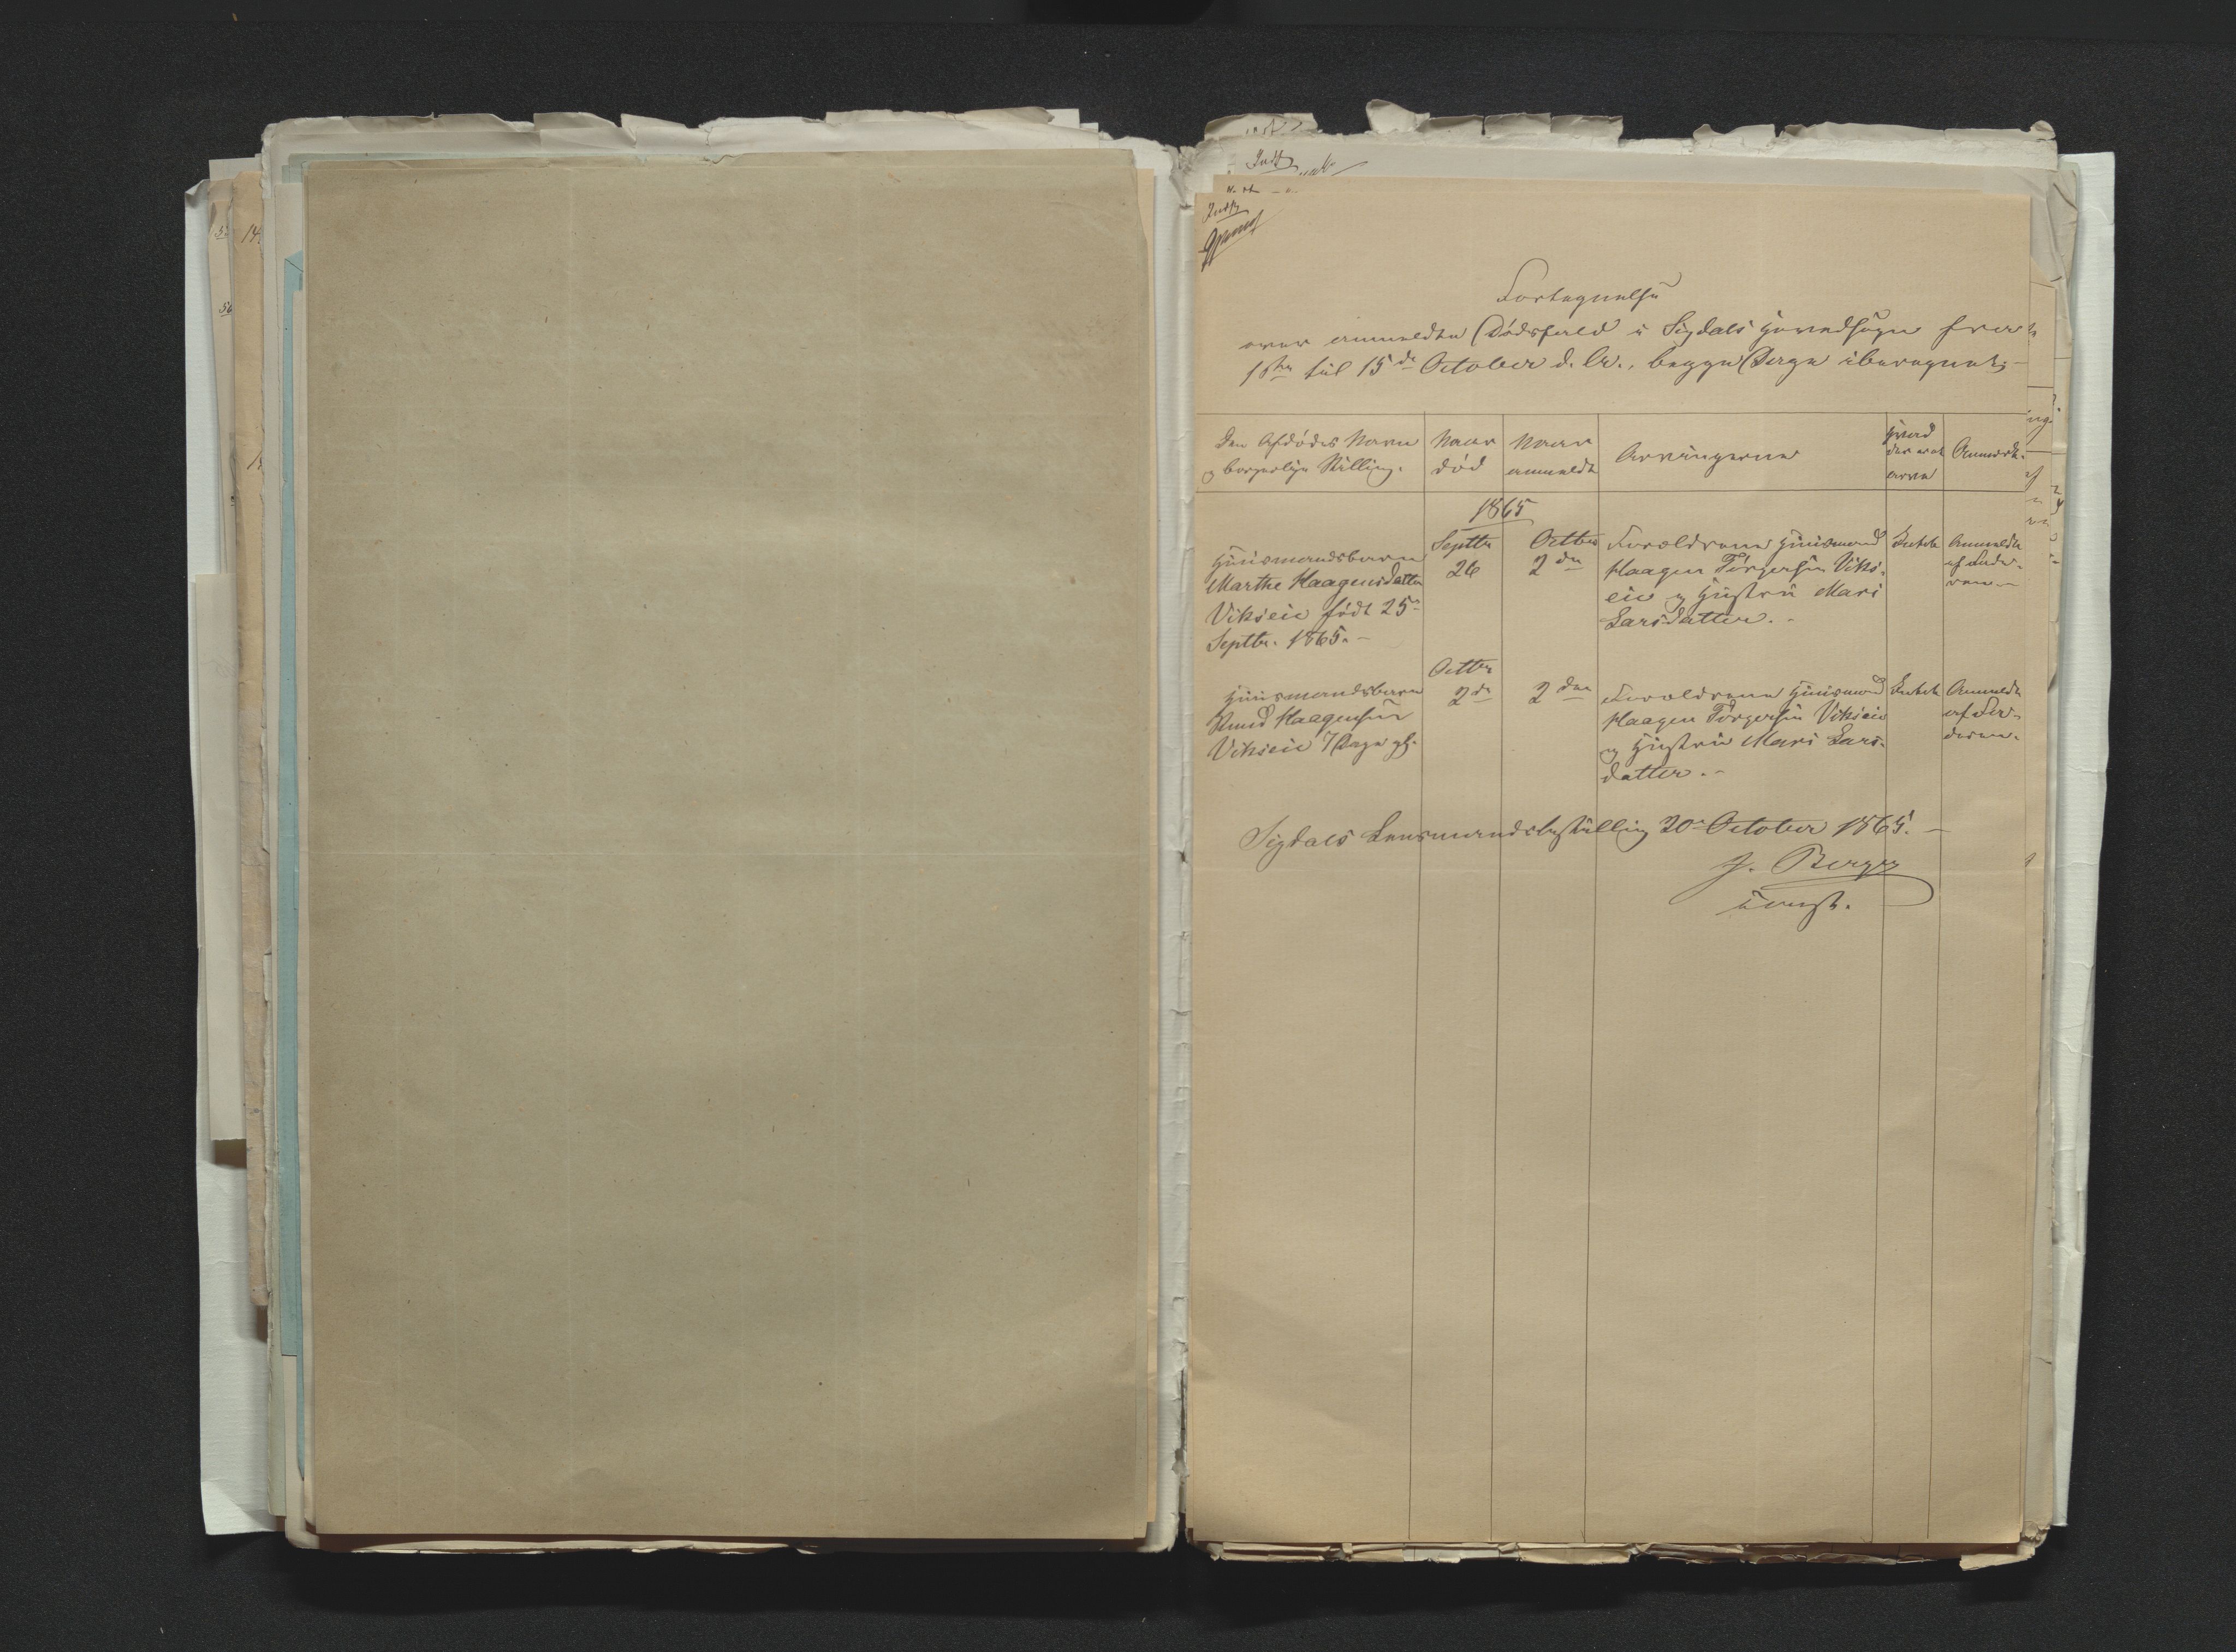 Indf
Fortegnelse
over anmeldte Dødsfald i Sigdals Hovedsogn fra
1ste til 15de October d. Ar., begge Dage iberegnet,-
Den Afdødes Navn
og borgerlige Stilling.
Naar
død
Naar
anmeldt
Arvingerne
Hvad
der er at
arve
Anmærk.
1865
Huusmandsbarn
Marthe Haagensdatter
Vikseie født 25-
Septbr. 1865.-
Septbr
26
Octbr
2den
Forældrene Huusmand
Haagen Torgersen Viks-
eie og Hustru Mari
Larsdatter.-
Intet
Anmeldt
af Fade-
ren.-
Huusmandsbarn
Knud Haagensen
Vikseie 7 Dage gl.
Octbr
2de
2den
Forældrene Huusmand
Haagen Torgersen Vikseie
og Hustru Mari Lars-
datter.-
Intet
Anmeldt
af Fa-
deren.
Sigdals Lensmandsbestilling 20- October 1865.-
J. Berger
const.